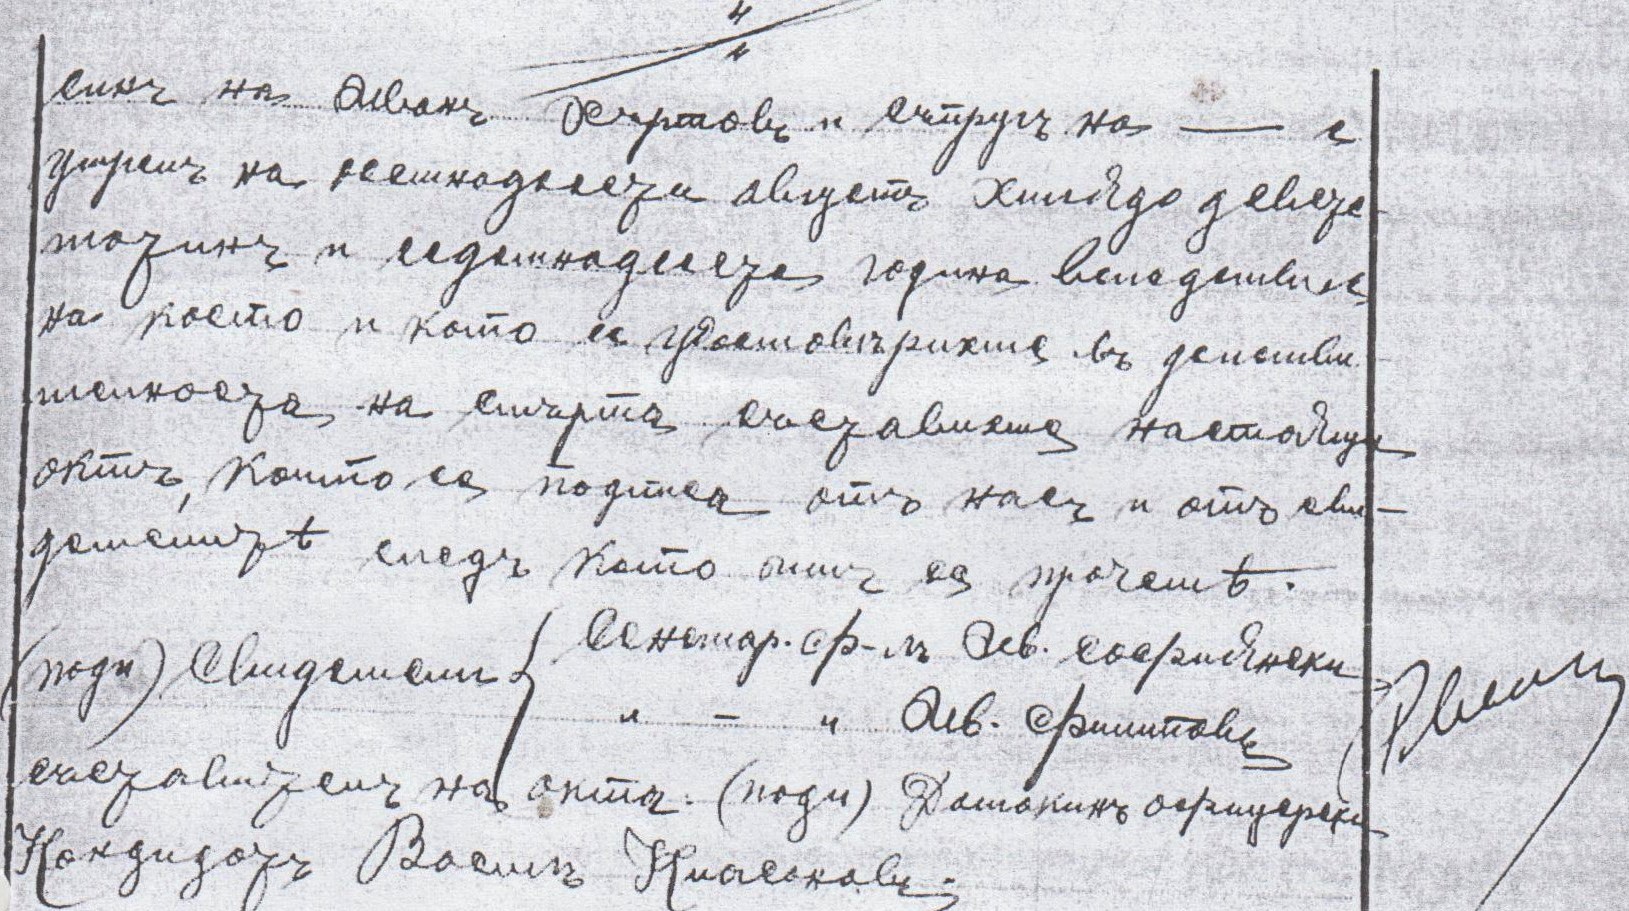 синъ на Иванъ Хъртовъ и съпругъ на — е
умрелъ на осемнадесети августъ Хилядо девета-
тотинъ и седемнадесета година вследствие
на което и като се удостоверихме въ действи-
телностьта на смъртта съставихме настоящи
актъ, който се подписа отъ насъ и отъ сви-
детелитѣ следъ като имъ се прочете.
(подп) Свидетели { Санитар. ф-лъ Ив. Софиянски
" - " Ив. Филиповъ
съставителъ на акта: (подп) Домакинъ офицерски
Кандидатъ Василъ